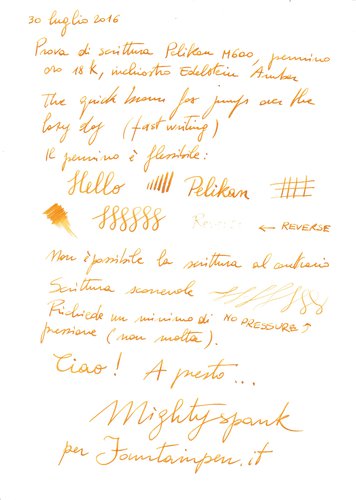 30 luglio 2016
Prova di scrittura Pelikan M600, pennino
oro 18K, inchiostro Edelstein Amber
The quick brown fox jumps over the
lazy dog (fast writing)
Il pennino è flessibile:
Hello Pelikan
← REVERSE
Non è possibile la scrittura al contrario
Scrittura scorrevole
Richiede un minimo di NO PRESSURE ↑
pressione (non molta).
Ciao! A presto...
Mightyspank
per Fountainpen.it